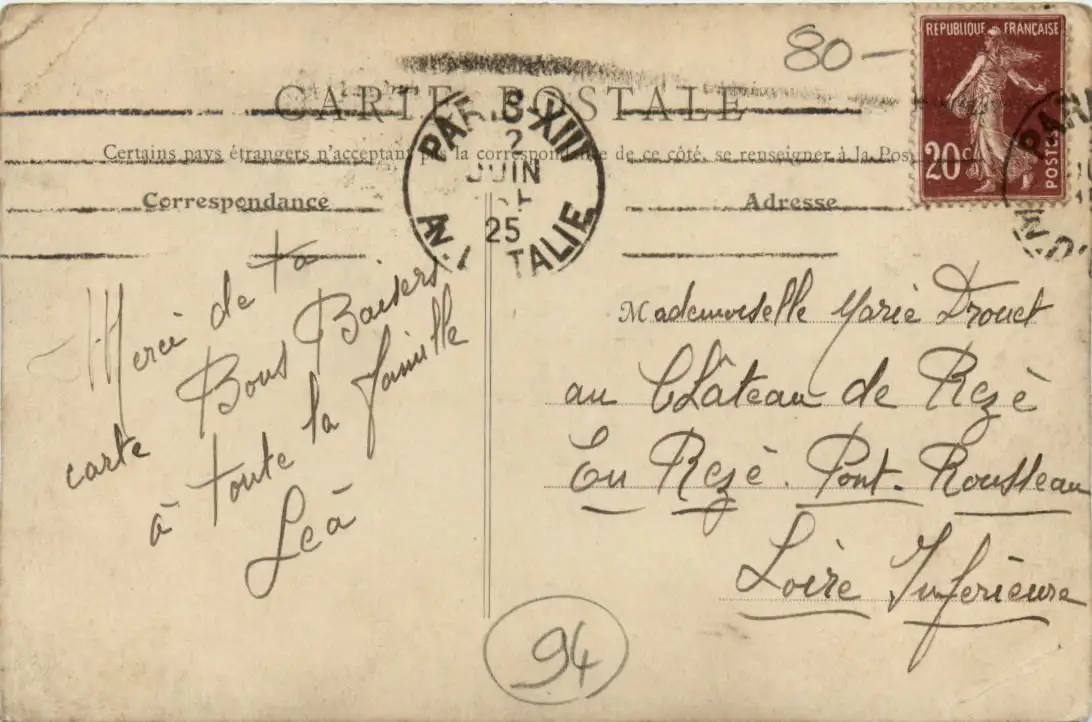 80-
REPUBLIQUE FRANÇAISE
20c
POSTES
CARTE POSTALE
PARIS XIII
2
JUIN
25
AV. D'ITALIE
Certains pays étrangers n'acceptant pas la correspondance de ce côté, se renseigner à la Poste
Correspondance
Adresse
Merci de ta
carte Bons Baisers
à toute la famille
Leà
Mademoiselle Marie Drouet
au Château de Rezè
En Rezè. Pont-Rousseau
Loire Inferieure
94